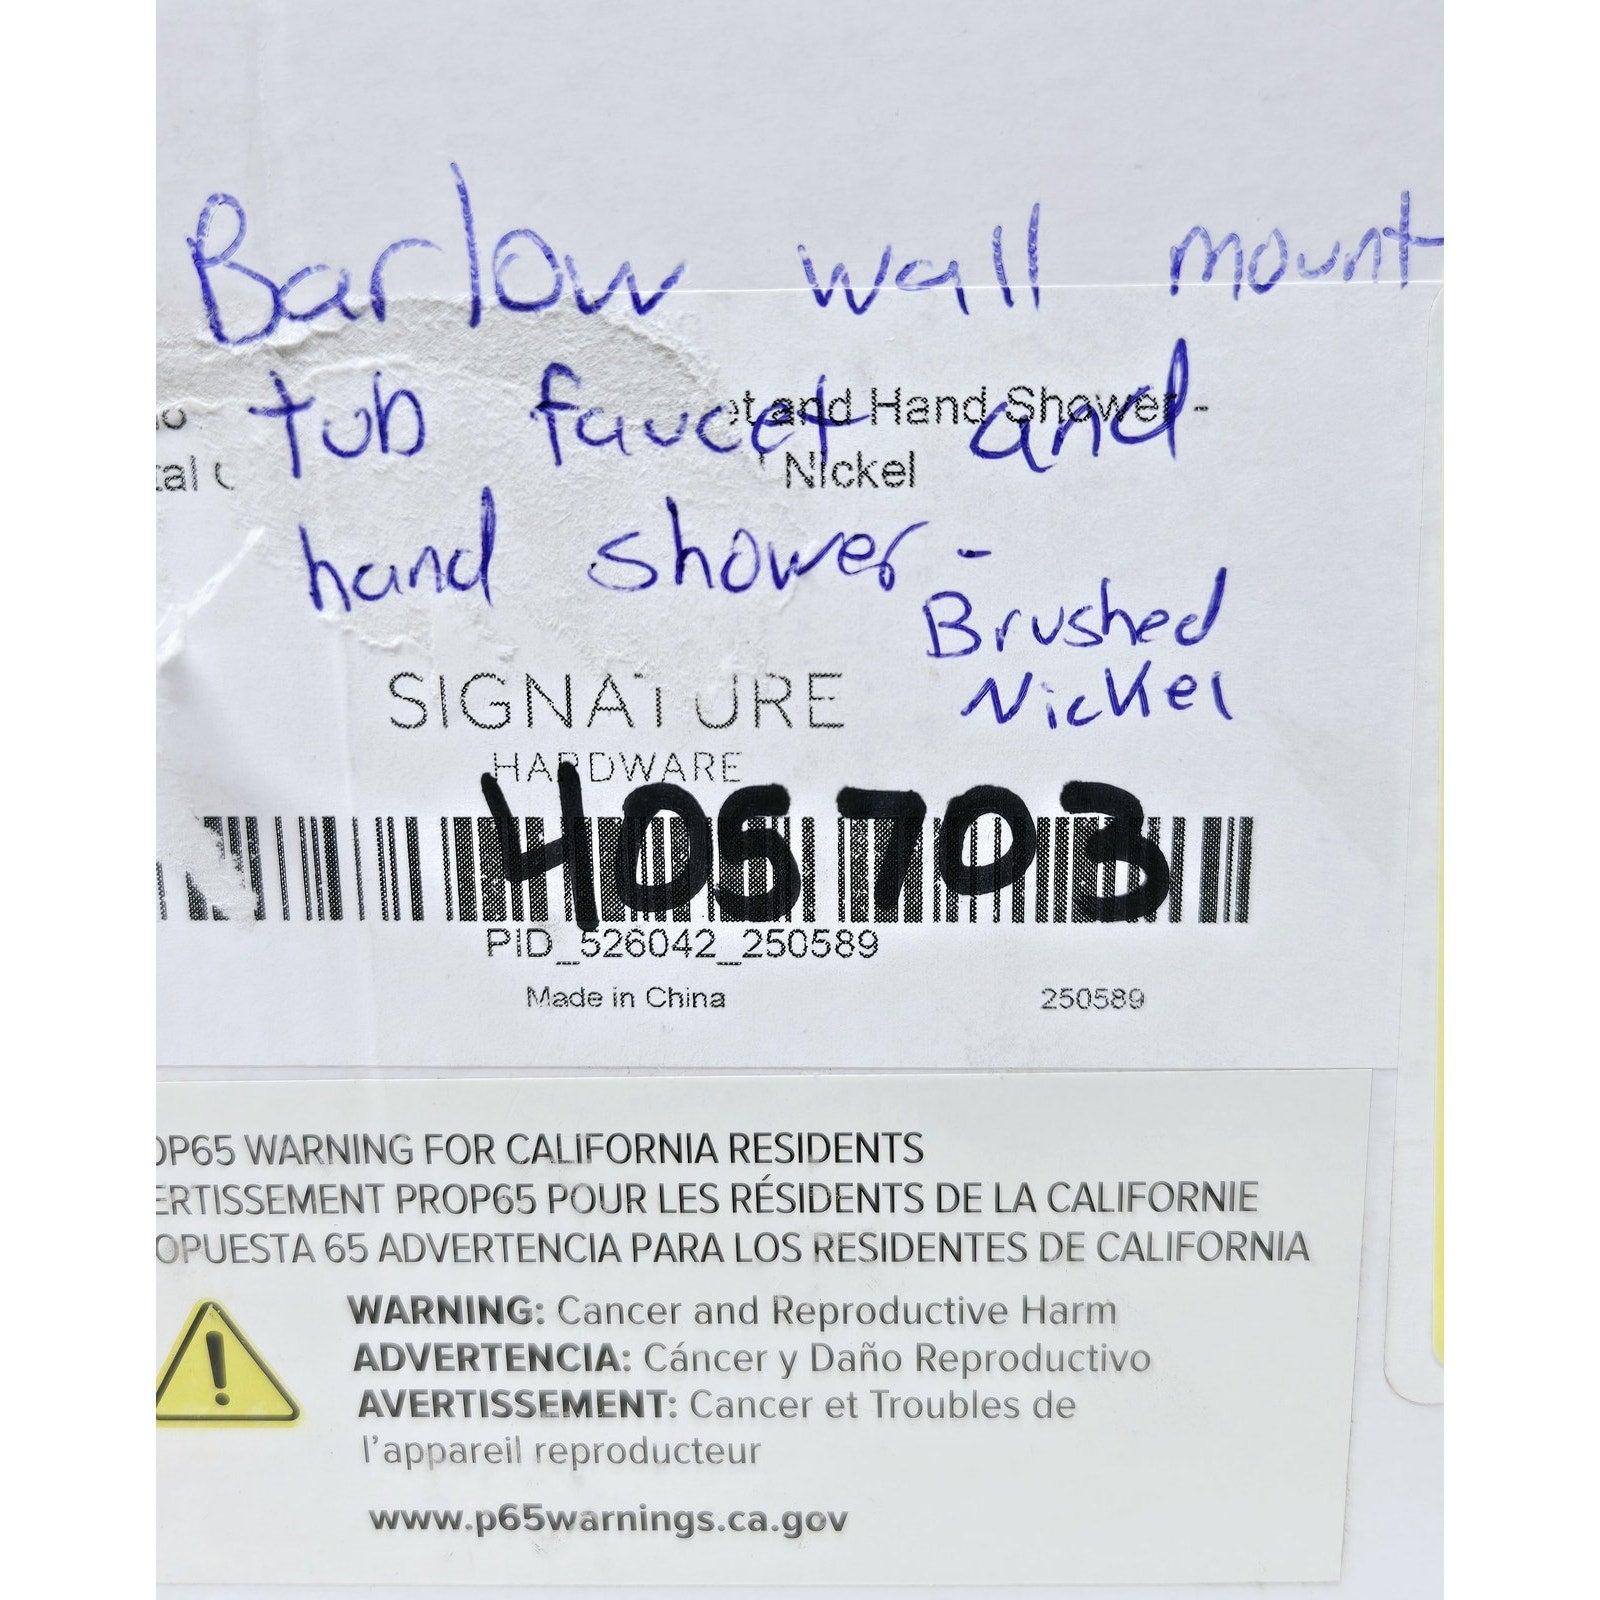 Barlow wall mount
tub faucet and
and Hand Shower -
Nickel
hand shower -
Brushed
Nickel
SIGNATURE
HARDWARE
405703
PID_526042_250589
Made in China 250589
OP65 WARNING FOR CALIFORNIA RESIDENTS
ERTISSEMENT PROP65 POUR LES RÉSIDENTS DE LA CALIFORNIE
OPUESTA 65 ADVERTENCIA PARA LOS RESIDENTES DE CALIFORNIA
WARNING: Cancer and Reproductive Harm
ADVERTENCIA: Cáncer y Daño Reproductivo
AVERTISSEMENT: Cancer et Troubles de
l'appareil reproducteur
www.p65warnings.ca.gov